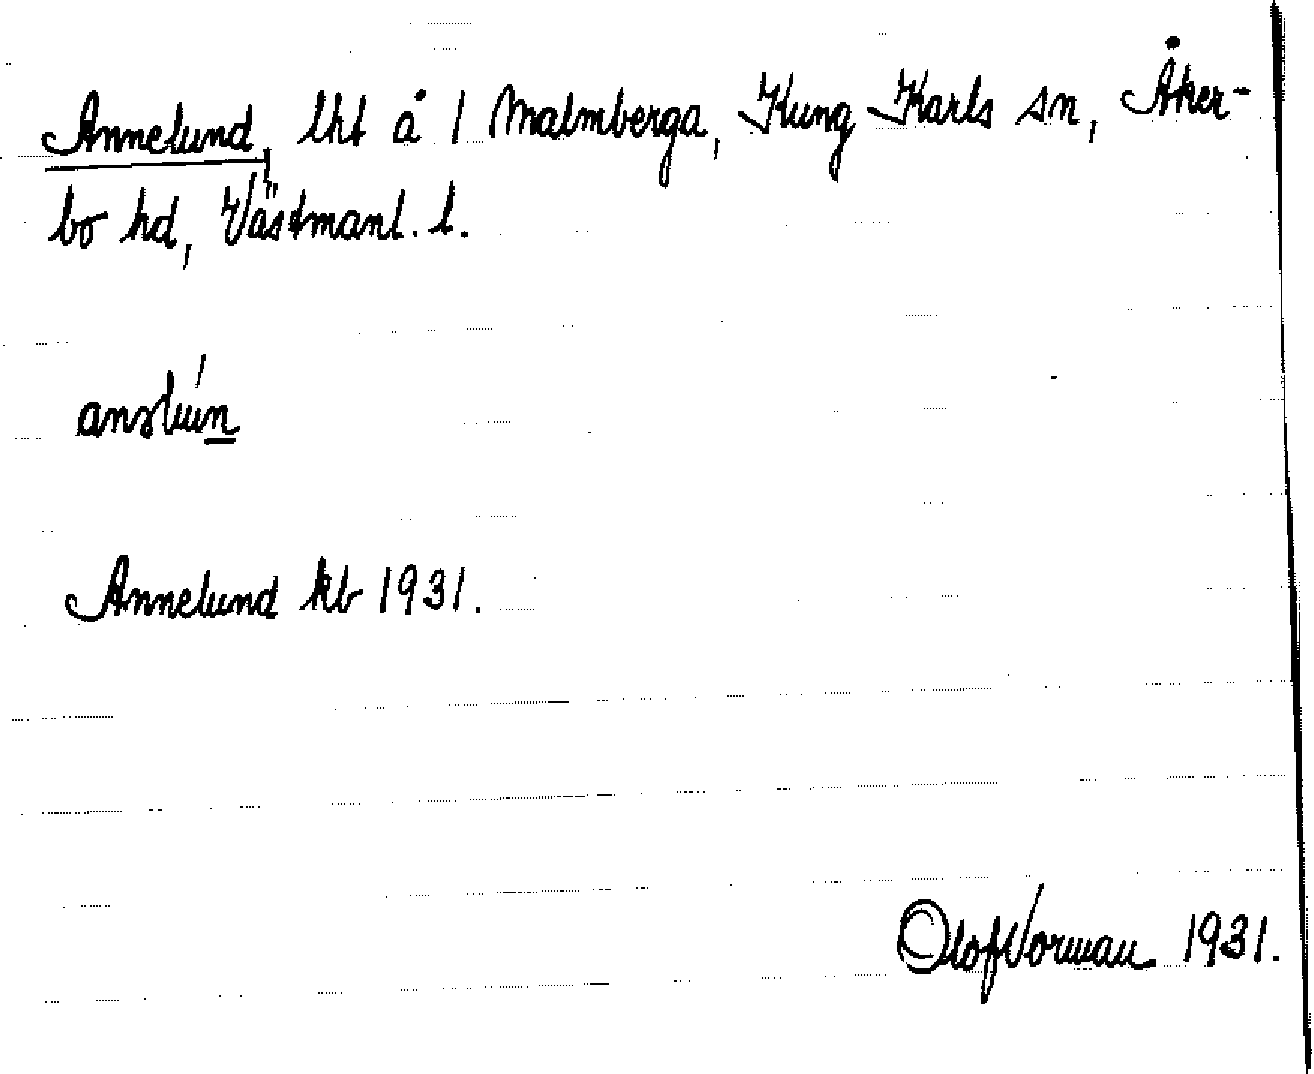 Annelund, lht å 1 Malmberga, Kung Karls sn, Åker-
bo hd, Västmanl. l.
Annelund kb 1931.
Olof Vorman 1931.